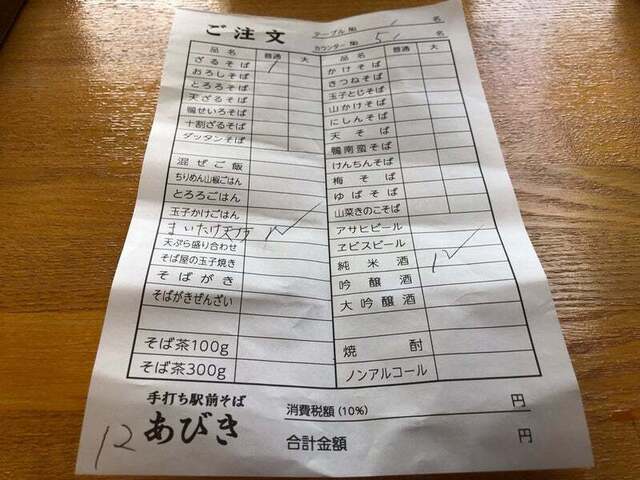 ご注文
テーブル№ 名
カウンター№ 5 1 名
品名 普通 大
ざるそば 1
おろしそば
とろろそば
天ざるそば
鴨せいろそば
十割ざるそば
ダッタンそば
混ぜご飯
ちりめん山椒ごはん
とろろごはん
玉子かけごはん
まいたけ天ぷら 1 ✓
天ぷら盛り合わせ
そば屋の玉子焼き
そばがき
そばがきぜんざい
そば茶100g
そば茶300g
品名 普通 大
かけそば
きつねそば
玉子とじそば
山かけそば
にしんそば
天そば
鴨南蛮そば
けんちんそば
梅そば
ゆばそば
山菜きのこそば
アサヒビール
ヱビスビール
純米酒 1 ✓
吟醸酒
大吟醸酒
焼酎
ノンアルコール
手打ち駅前そば
あびき
12
消費税額(10%) 円
合計金額 円